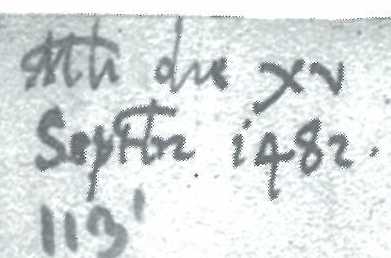 die xv
Septbr 1482.
113'